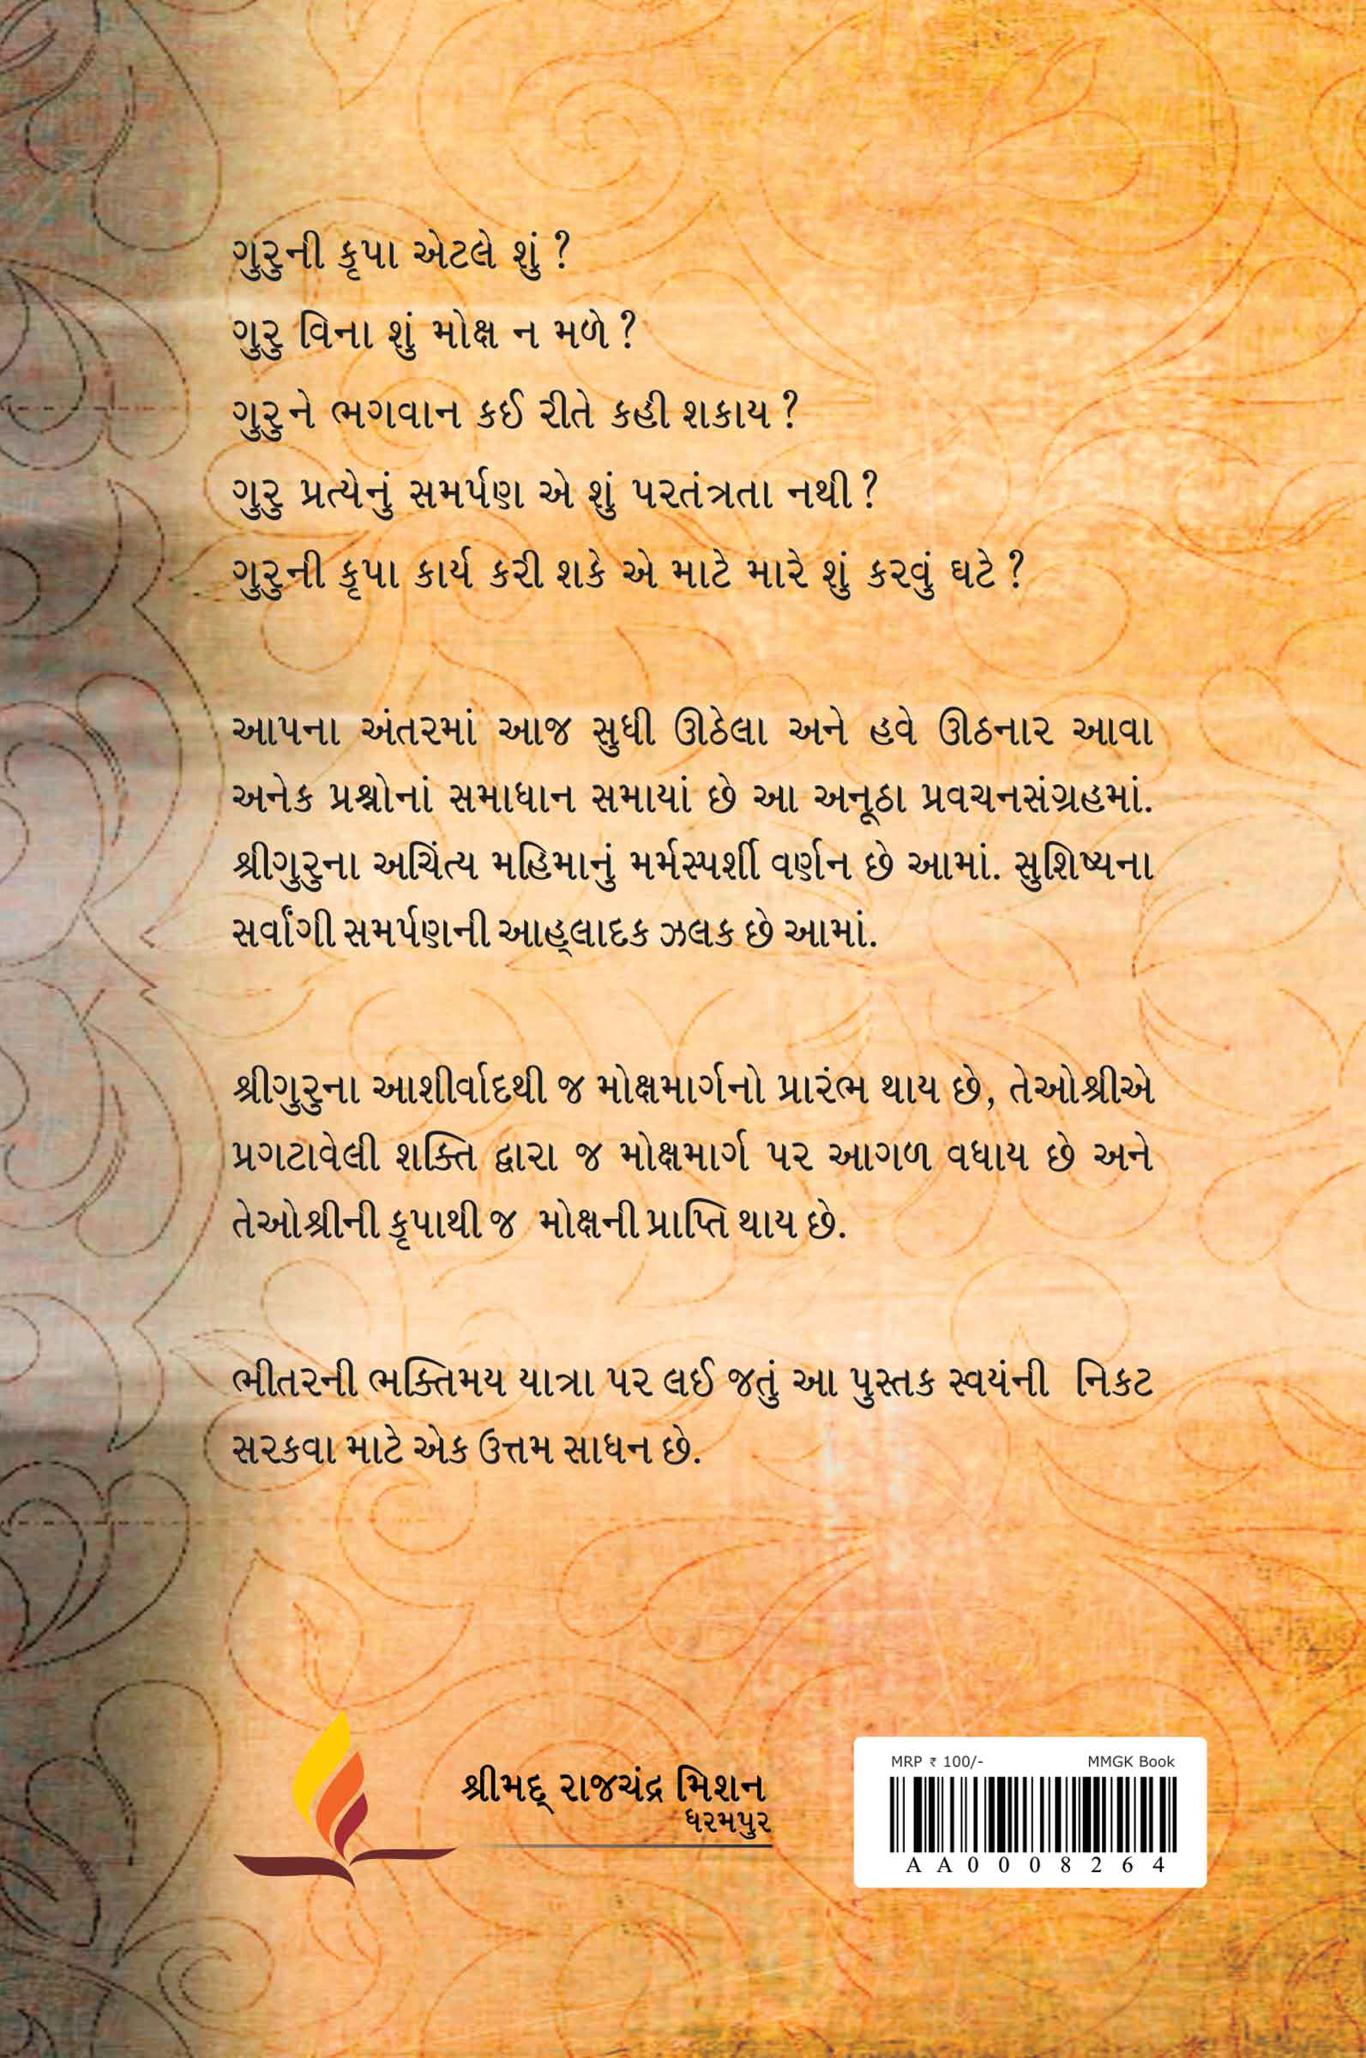 ગુરુની કૃપા એટલે શું ?
ગુરુ વિના શું મોક્ષ ન મળે ?
ગુરુને ભગવાન કઈ રીતે કહી શકાય ?
ગુરુ પ્રત્યેનું સમર્પણ એ શું પરતંત્રતા નથી ?
ગુરુની કૃપા કાર્ય કરી શકે એ માટે મારે શું કરવું ઘટે ?
આપના અંતરમાં આજ સુધી ઊઠેલા અને હવે ઊઠનાર આવા
અનેક પ્રશ્નોનાં સમાધાન સમાયાં છે આ અનૂઠા પ્રવચનસંગ્રહમાં.
શ્રીગુરુના અચિંત્ય મહિમાનું મર્મસ્પર્શી વર્ણન છે આમાં. સુશિષ્યના
સર્વાંગી સમર્પણની આહ્લાદક ઝલક છે આમાં.
શ્રીગુરુના આશીર્વાદથી જ મોક્ષમાર્ગનો પ્રારંભ થાય છે, તેઓશ્રીએ
પ્રગટાવેલી શક્તિ દ્વારા જ મોક્ષમાર્ગ પર આગળ વધાય છે અને
તેઓશ્રીની કૃપાથી જ મોક્ષની પ્રાપ્તિ થાય છે.
ભીતરની ભક્તિમય યાત્રા પર લઈ જતું આ પુસ્તક સ્વયંની નિકટ
સરકવા માટે એક ઉત્તમ સાધન છે.
શ્રીમદ્ રાજચંદ્ર મિશન
ધરમપુર
MRP ₹ 100/- MMGK Book
AA0008264